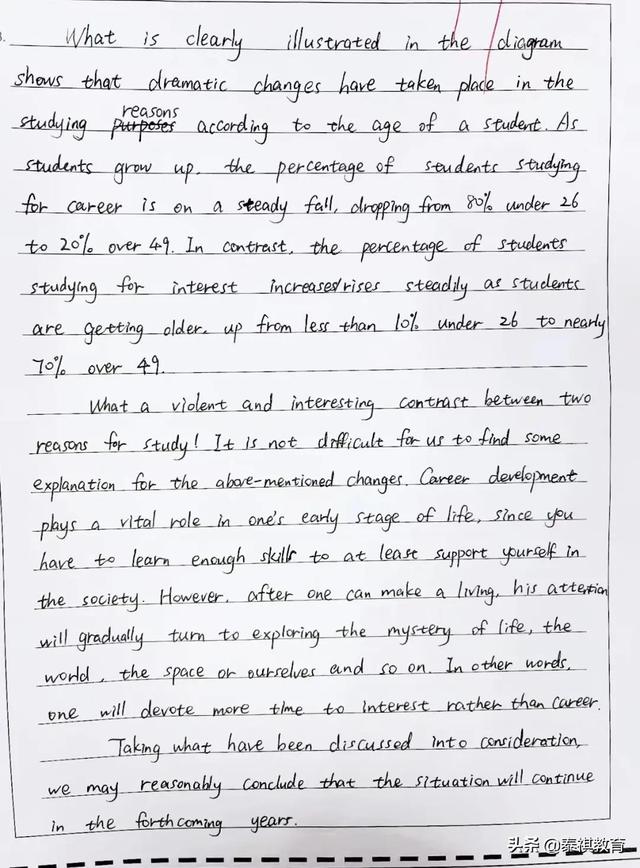 What is clearly illustrated in the diagram
shows that dramatic changes have taken place in the
reasons
studying purposes according to the age of a student. As
students grow up, the percentage of students studying
for career is on a steady fall, dropping from 80% under 26
to 20% over 49. In contrast, the percentage of students
studying for interest increases/rises steadily as students
are getting older, up from less than 10% under 26 to nearly
70% over 49.
What a violent and interesting contrast between two
reasons for study! It is not difficult for us to find some
explanation for the above-mentioned changes. Career development
plays a vital role in one's early stage of life, since you
have to learn enough skills to at least support yourself in
the society. However, after one can make a living, his attention
will gradually turn to exploring the mystery of life, the
world, the space or ourselves and so on. In other words,
one will devote more time to interest rather than career.
Taking what have been discussed into consideration,
we may reasonably conclude that the situation will continue
in the forthcoming years.
头条 @泰祺教育